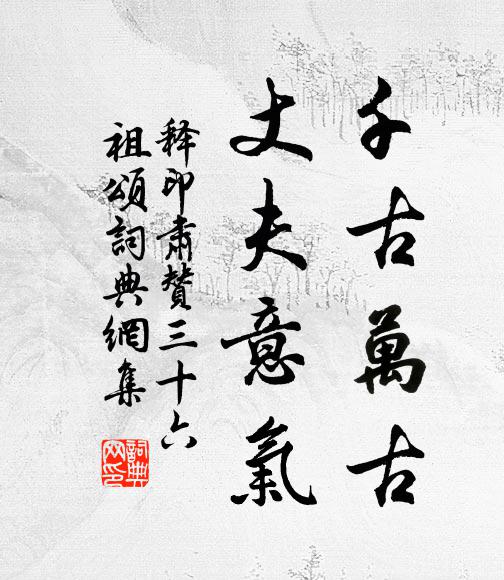 千古萬古
丈夫意氣
释印肅贊三十六
祖頌詞典網集
詞典网印